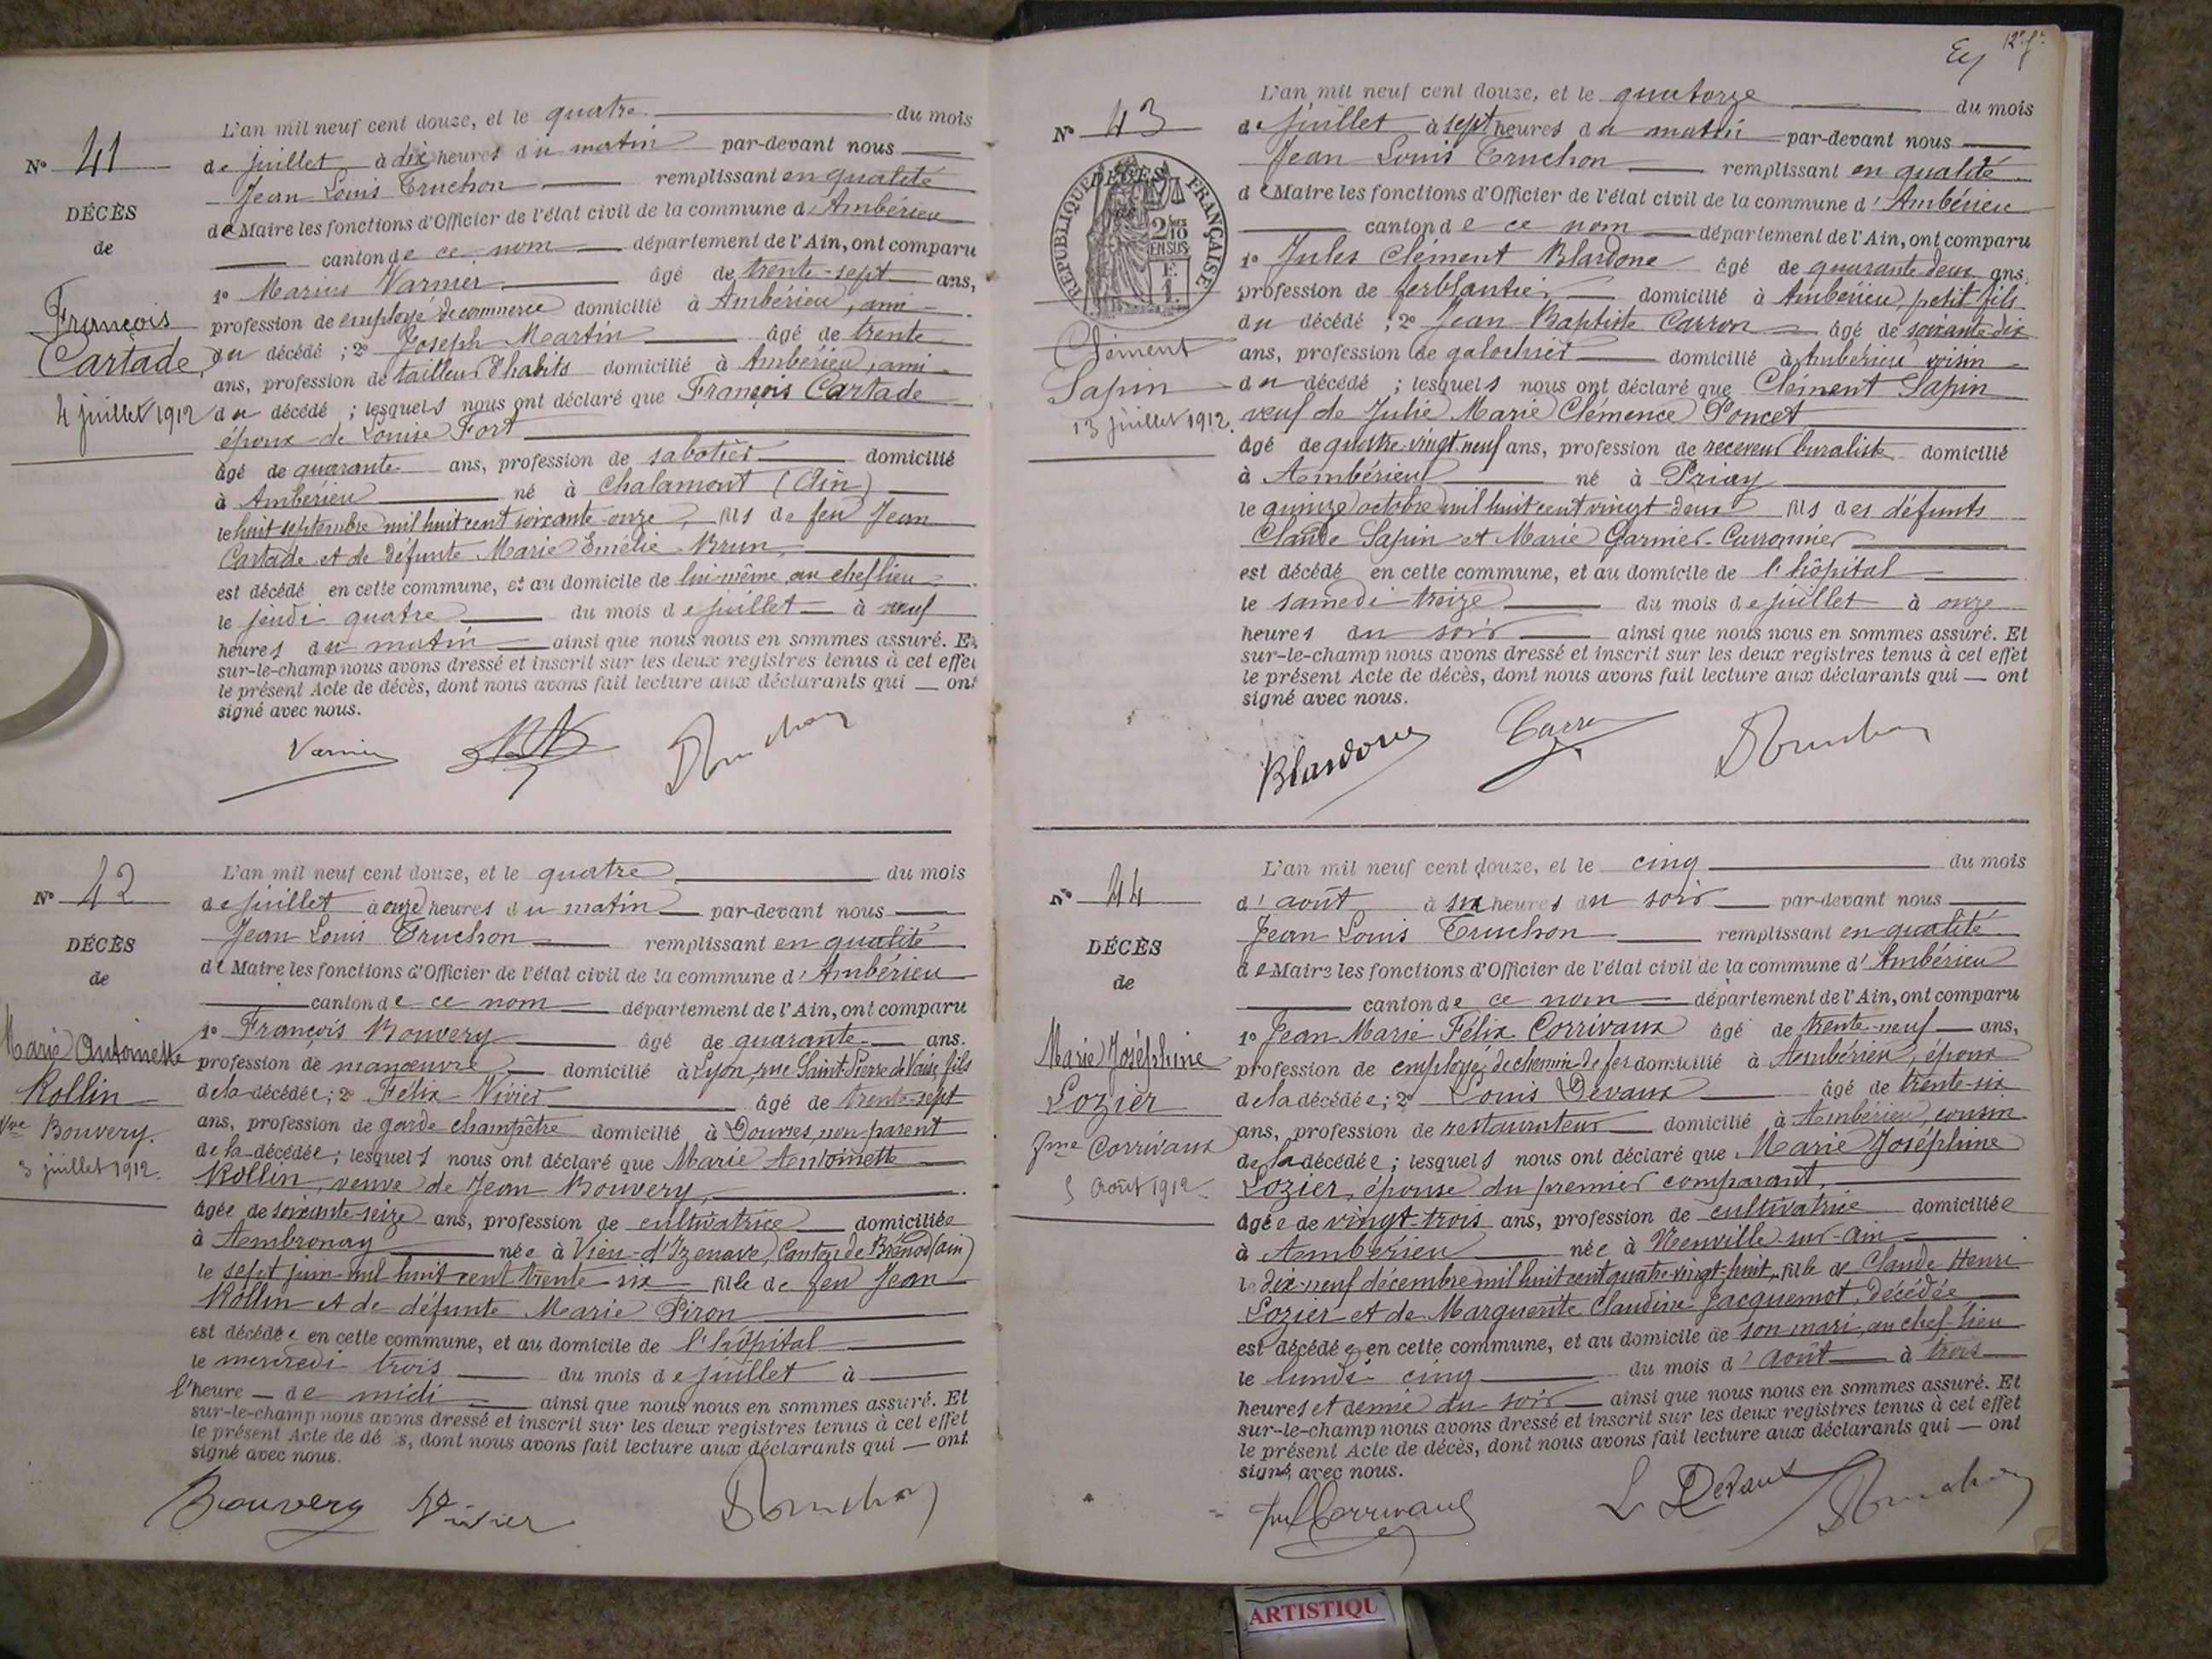 N° 41
DÉCÈS
de
François
Cartade
4 juillet 1912
L'an mil neuf cent douze, et le quatre du mois
de juillet à dix heures du matin par-devant nous
Jean Louis Truchon remplissant en qualité
de Maire les fonctions d'Officier de l'état civil de la commune d'Ambérieu
canton de ce nom département de l'Ain, ont comparu
1° Marius Varnier âgé de trente-sept ans,
profession de employé de commerce domicilié à Ambérieu, ami
du décédé ; 2° Joseph Martin âgé de trente
ans, profession de tailleur d'habits domicilié à Ambérieu, ami
du décédé ; lesquels nous ont déclaré que François Cartade
époux de Louise Fort
âgé de quarante ans, profession de sabotier domicilié
à Ambérieu né à Chalamont (Ain)
le huit septembre mil huit cent soixante onze, fils de feu Jean
Cartade et de défunte Marie Emélie Brun,
est décédé en cette commune, et au domicile de lui-même, au chef lieu
le jeudi quatre du mois de juillet à neuf
heures du matin ainsi que nous nous en sommes assuré. Et
sur-le-champ nous avons dressé et inscrit sur les deux registres tenus à cet effet
le présent Acte de décès, dont nous avons fait lecture aux déclarants qui — ont
signé avec nous.
Varnier Truchon
N° 42
DÉCÈS
de
Marie Antoinette
Rollin
Vve Bouvery.
3 juillet 1912.
L'an mil neuf cent douze, et le quatre du mois
de juillet à onze heures du matin par-devant nous
Jean Louis Truchon remplissant en qualité
de Maire les fonctions d'Officier de l'état civil de la commune d'Ambérieu
canton de ce nom département de l'Ain, ont comparu
1° François Bouvery âgé de quarante ans.
profession de manœuvre domicilié à Lyon, rue Saint-Pierre de Vaise, fils
de la décédée ; 2° Félix Vivier âgé de trente-sept
ans, profession de garde champêtre domicilié à Douvres, non parent
de la décédée ; lesquels nous ont déclaré que Marie Antoinette
Rollin, veuve de Jean Bouvery,
âgée de soixante-seize ans, profession de cultivatrice domiciliée
à Ambronay née à Vieu-d'Izenave, Canton de Brénod (ain)
le sept juin mil huit cent trente six fille de feu Jean
Rollin et de défunte Marie Piron
est décédée en cette commune, et au domicile de l'hôpital
le mercredi trois du mois de juillet à
l'heure — de midi ainsi que nous nous en sommes assuré. Et
sur-le-champ nous avons dressé et inscrit sur les deux registres tenus à cet effet
le présent Acte de dé s, dont nous avons fait lecture aux déclarants qui — ont
signé avec nous.
Bouvery Vivier Truchon
12e f.
N° 43
DÉCÈS
RÉPUBLIQUE FRANÇAISE
2/10 EN SUS
Clément
Sapin
13 juillet 1912.
L'an mil neuf cent douze, et le quatorze du mois
de juillet à sept heures du matin par-devant nous
Jean Louis Truchon remplissant en qualité
de Maire les fonctions d'Officier de l'état civil de la commune d'Ambérieu
canton de ce nom département de l'Ain, ont comparu
1° Jules Clément Blardone âgé de quarante deux ans,
profession de ferblantier domicilié à Ambérieu, petit fils
du décédé ; 2° Jean Baptiste Carron âgé de soixante-dix
ans, profession de galochier domicilié à Ambérieu voisin
du décédé ; lesquels nous ont déclaré que Clément Sapin
veuf de Julie Marie Clémence Poncet
âgé de quatre-vingt neuf ans, profession de receveur buraliste domicilié
à Ambérieu né à Priay
le quinze octobre mil huit cent vingt deux fils des défunts
Claude Sapin et Marie Garnier-Carronnier
est décédé en cette commune, et au domicile de l'hôpital
le samedi treize du mois de juillet à onze
heures du soir ainsi que nous nous en sommes assuré. Et
sur-le-champ nous avons dressé et inscrit sur les deux registres tenus à cet effet
le présent Acte de décès, dont nous avons fait lecture aux déclarants qui — ont
signé avec nous.
Blardone Carron Truchon
N° 44
DÉCÈS
de
Marie Joséphine
Lozier
fme Corrivaux
5 août 1912
L'an mil neuf cent douze, et le cinq du mois
d'août à six heures du soir par-devant nous
Jean Louis Truchon remplissant en qualité
de Maire les fonctions d'Officier de l'état civil de la commune d'Ambérieu
canton de ce nom département de l'Ain, ont comparu
1° Jean Marie Félix Corrivaux âgé de trente-neuf ans,
profession de employé de chemin de fer domicilié à Ambérieu, époux
de la décédée ; 2° Louis Devaux âgé de trente-six
ans, profession de restaurateur domicilié à Ambérieu, cousin
de la décédée ; lesquels nous ont déclaré que Marie Joséphine
Lozier, épouse du premier comparant,
âgée de vingt-trois ans, profession de cultivatrice domiciliée
à Ambérieu née à Neuville-sur-Ain
le dix-neuf décembre mil huit cent quatre-vingt-huit, fille de Claude Henri
Lozier et de Marguerite Claudine Jacquemot, décédée
est décédée en cette commune, et au domicile de son mari, au chef-lieu
le lundi cinq du mois d'août à trois
heures et demie du soir ainsi que nous nous en sommes assuré. Et
sur-le-champ nous avons dressé et inscrit sur les deux registres tenus à cet effet
le présent Acte de décès, dont nous avons fait lecture aux déclarants qui — ont
signé avec nous.
Corrivaux L Devaux Truchon
ARTISTIQU